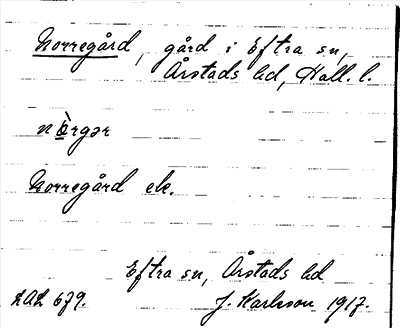 Norregård, gård i Eftra sn,
Årstads hd, Hall. l.
nòrgər
Norregård ek.
Eftra sn, Årstads hd
LAL 679. J. Karlsson 1917.